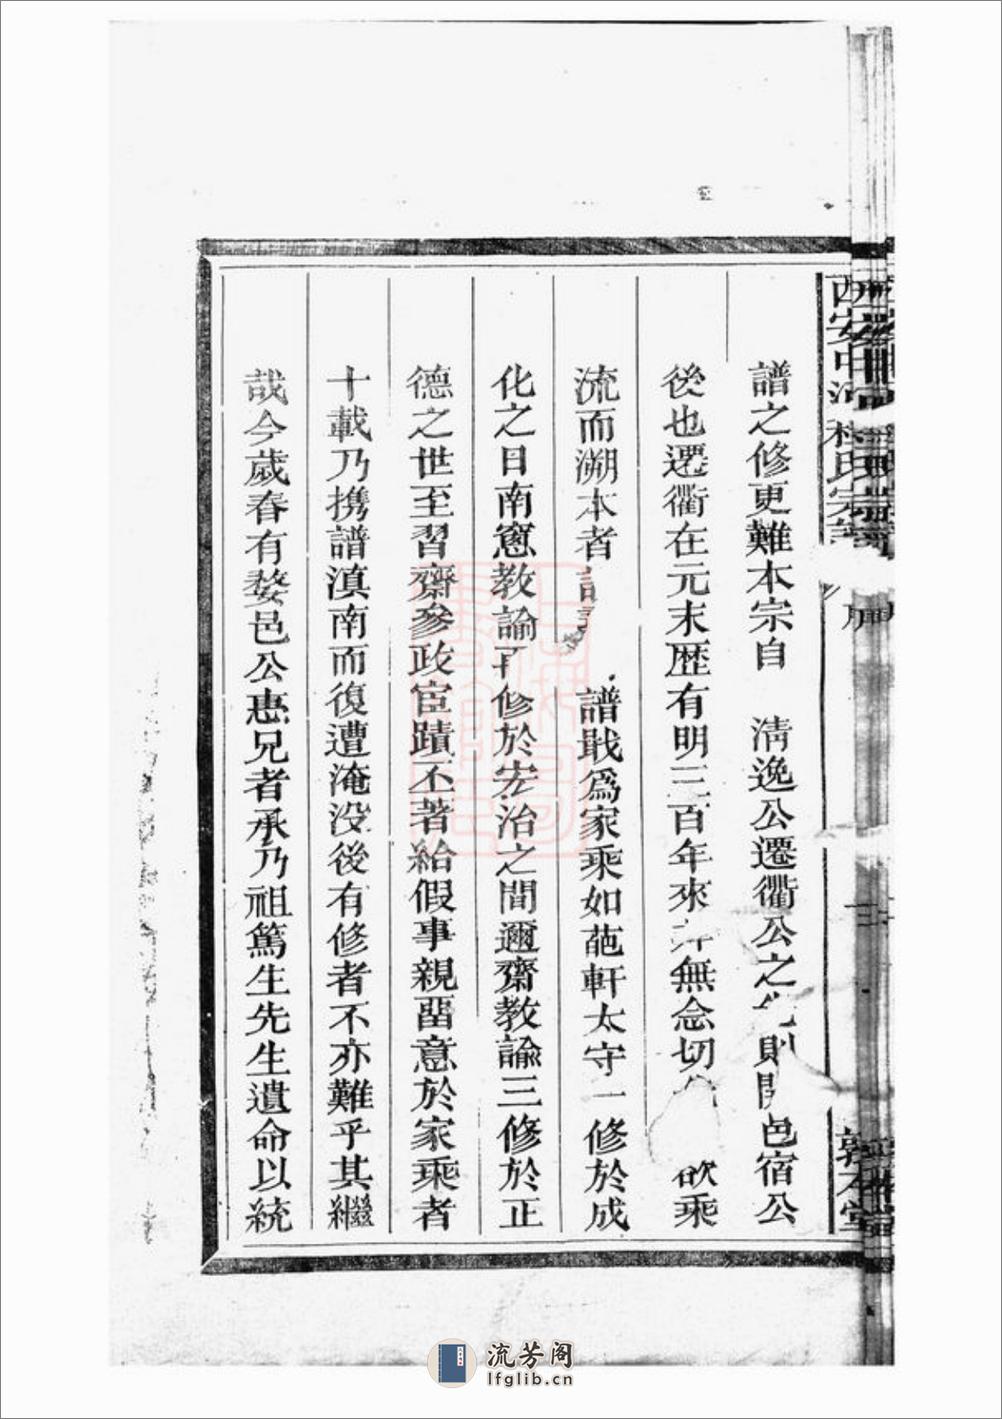 譜之修更難本宗自　淸逸公遷衢公之　則　邑宿公
後也遷衢在元末歷有明三百年來　無念切　欲乘
流而溯本者　譜戢爲家乘如葩軒太守一修於成
化之日南窻敎諭再修於宏治之間邇齋敎諭三修於正
德之世至習齋參政宦蹟丕著給假事親畱意於家乘者
十載乃携譜滇南而復遭淹没後有修者不亦難乎其繼
哉今歲春有婺邑公惠兄者承乃祖篤生先生遺命以統
西安中河
氏宗
三
敦本堂
流芳阁
lfglib.cn